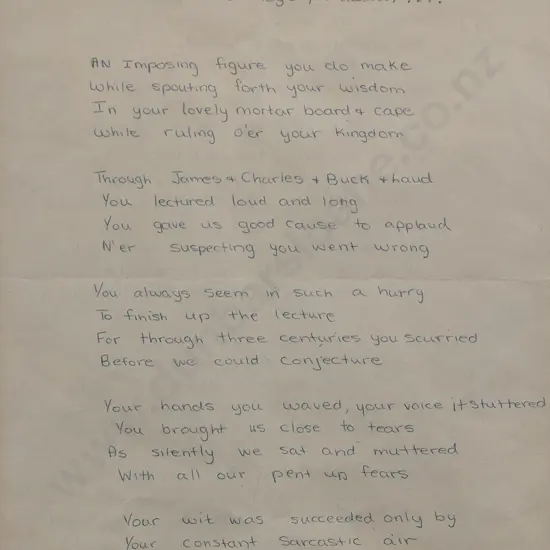 AN Imposing figure you do make
While spouting forth your wisdom
In your lovely mortar board & cape
While ruling o'er your Kingdom
Through James + Charles + Buck + haud
You lectured loud and long
You gave us good cause to applaud
N'er suspecting you went wrong
You always seem in such a hurry
To finish up the lecture
For through three centuries you scurried
Before we could conjecture
Your hands you waved, your voice it stuttered
You brought us close to tears
As silently we sat and muttered
With all our pent up fears
Your wit was succeeded only by
Your constant sarcastic air